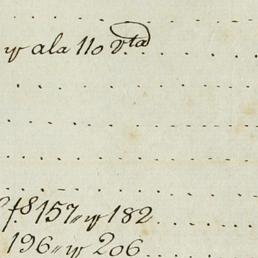 y ala 110 vta
fs 157,, y 182
196,, y 206